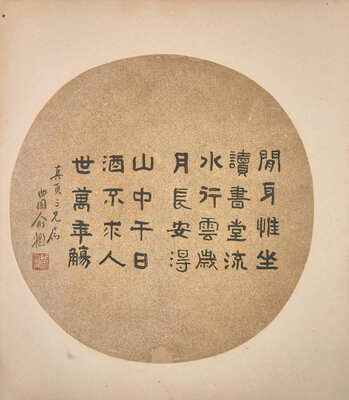 閒身惟坐
讀書堂流
水行雲歲
月長安得
山中千日
酒不求人
世萬年觴
三兄屬
曲園俞樾